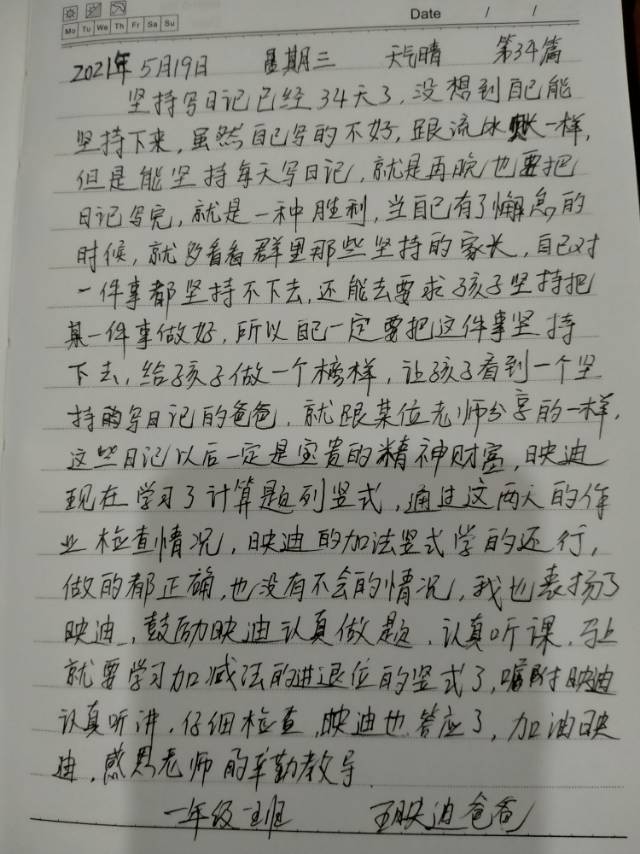 Mo Tu We Th Fr Sa Su
Date / /
2021年5月19日 星期三 天气晴 第34篇
坚持写日记已经34天了,没想到自己能
坚持下来,虽然自己写的不好,跟流水账一样,
但是能坚持每天写日记,就是再晚也要把
日记写完,就是一种胜利,当自己有了懈怠的
时候,就多看看群里那些坚持的家长,自己对
一件事都坚持不下去,还能去要求孩子坚持把
某一件事做好,所以自己一定要把这件事坚持
下去,给孩子做一个榜样,让孩子看到一个坚
持的写日记的爸爸,就跟某位老师分享的一样,
这些日记以后一定是宝贵的精神财富,映迪
现在学习了计算题列竖式,通过这两天的作
业检查情况,映迪的加法竖式学的还行,
做的都正确,也没有不会的情况,我也表扬了
映迪,鼓励映迪认真做题,认真听课,马上
就要学习加减法的进退位的竖式了,嘱咐映迪
认真听讲,仔细检查,映迪也答应了,加油映
迪,感恩老师的辛勤教导
一年级 班 王映迪爸爸